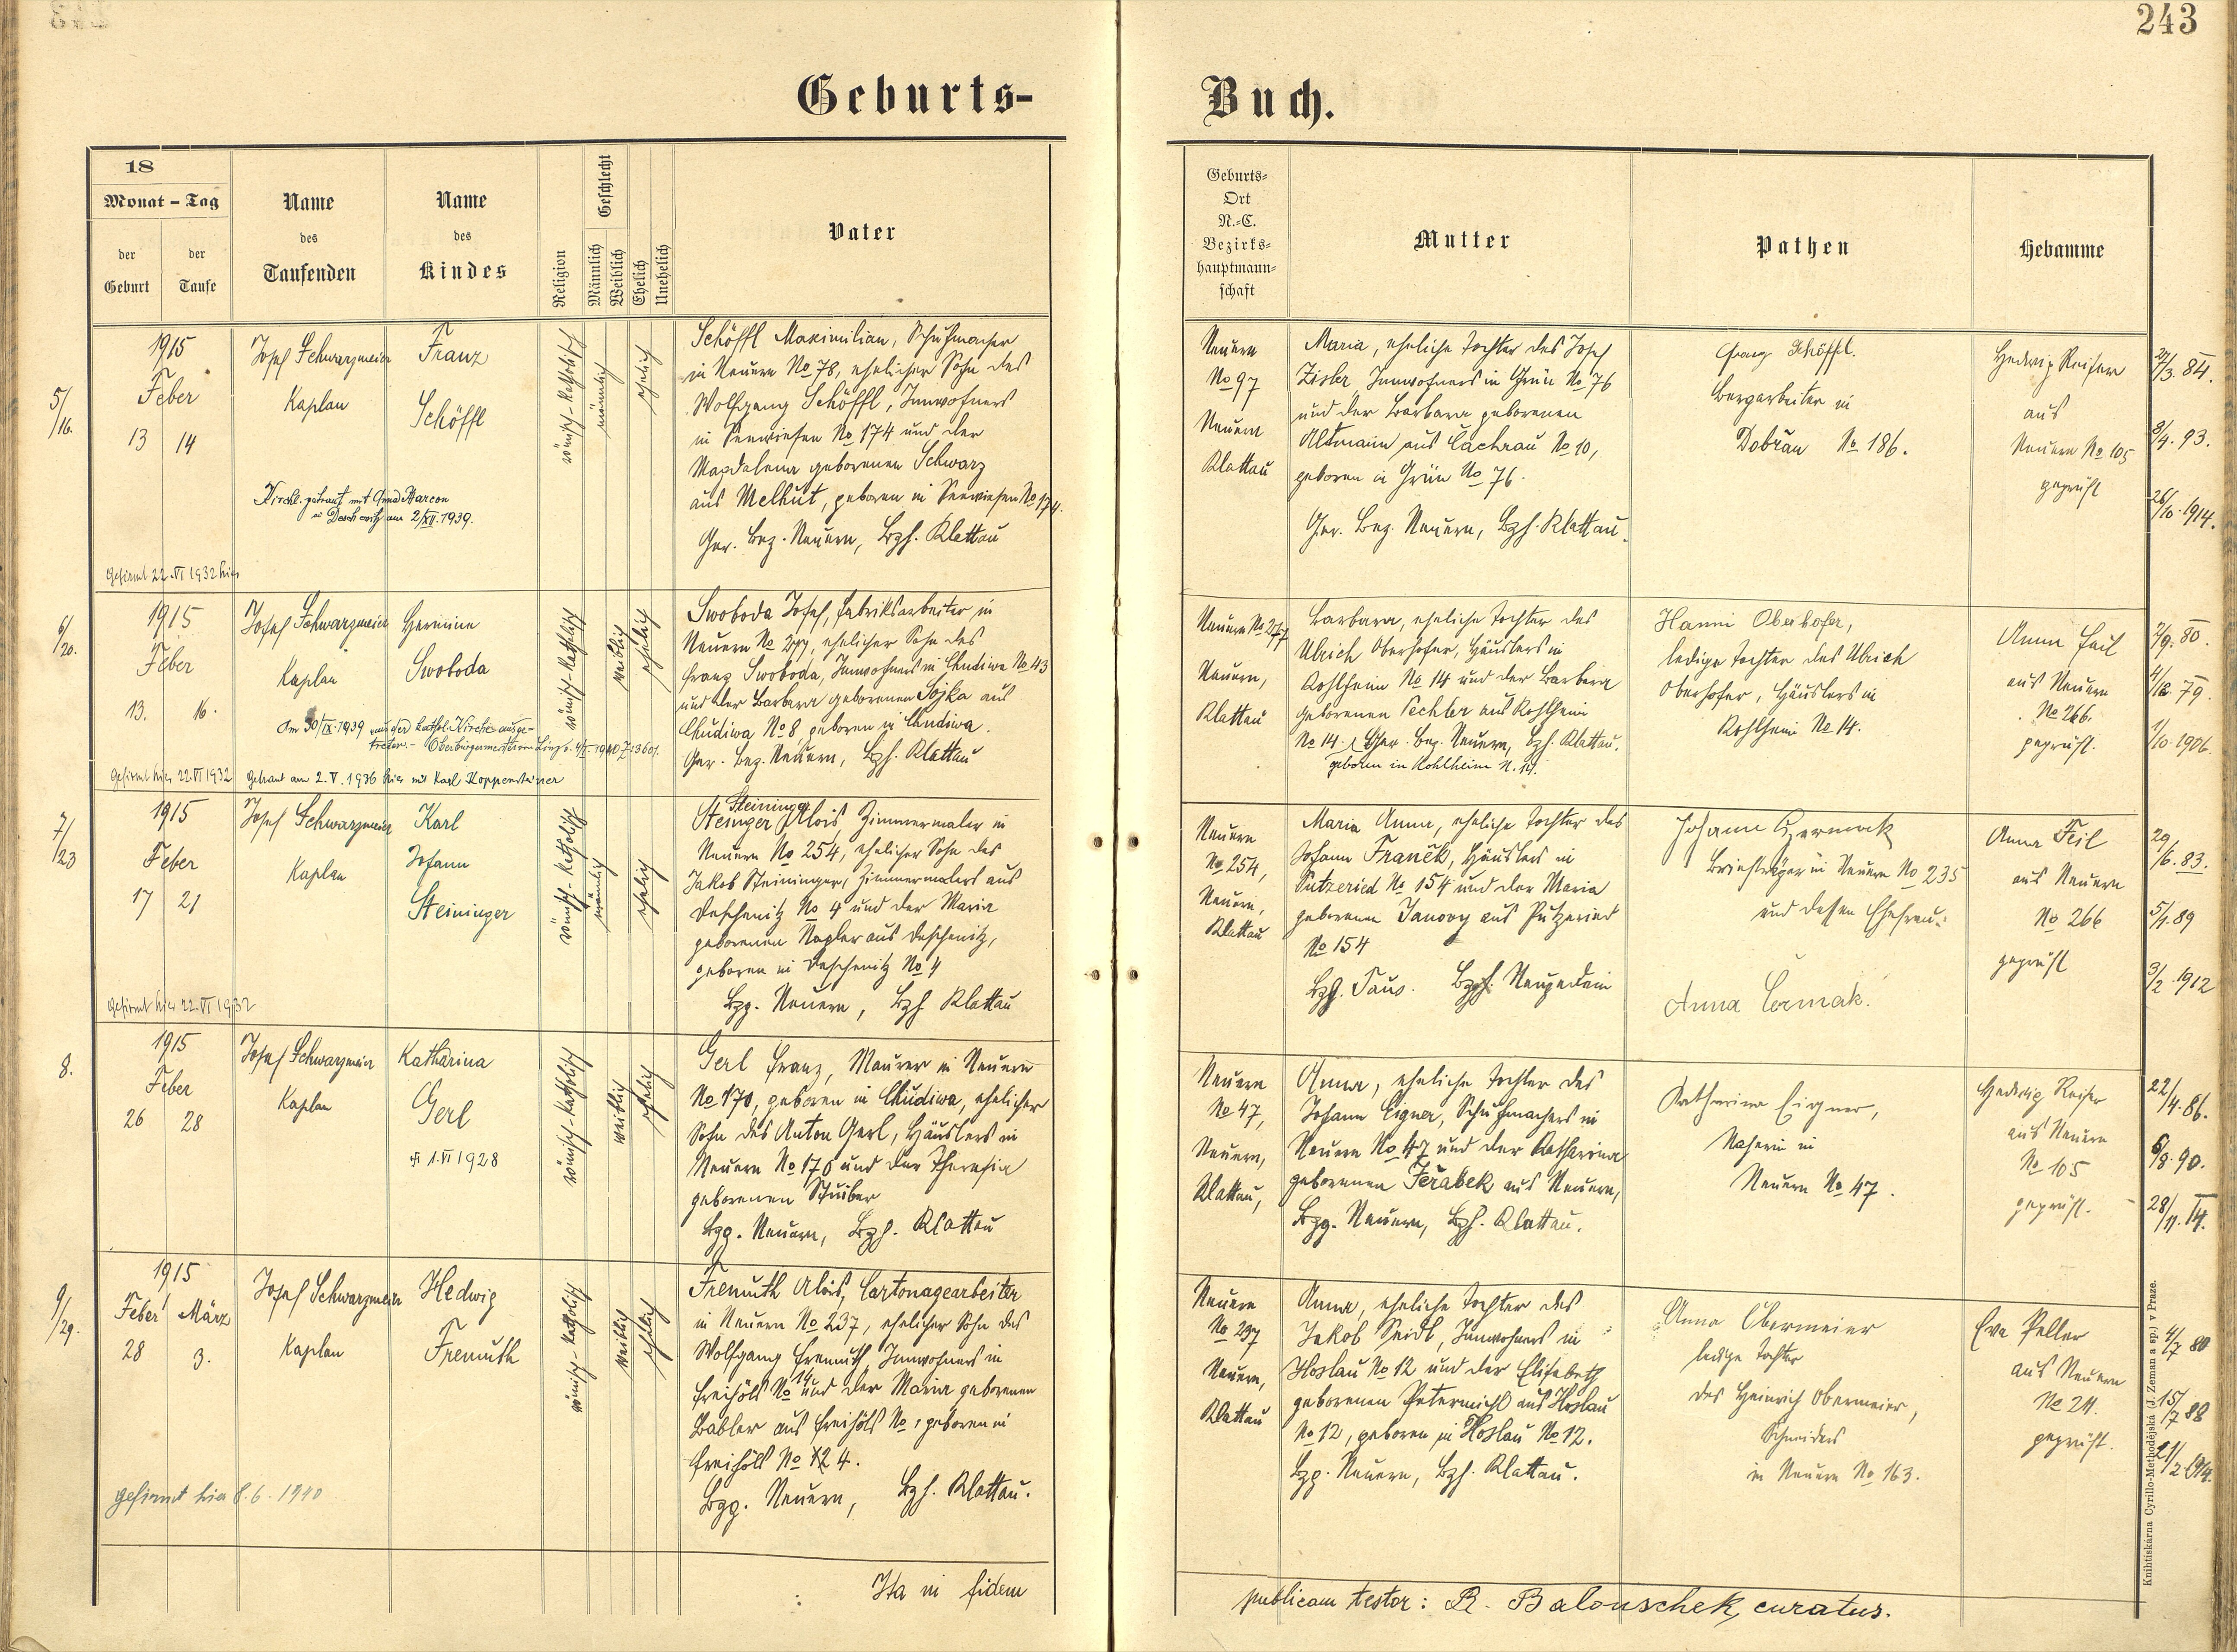 243
Geburts-
Buch.
18
Monat - Tag
der Geburt
der Taufe
Name des Taufenden
Name des Kindes
Religion
Geschlecht
Männlich
Weiblich
Ehelich
Unehelich
Vater
Geburts-
Ort
N.-C.
Bezirks-
hauptmann-
schaft
Mutter
Pathen
Hebamme
5/16.
1915
Feber
13 14
Josef Schwarzmeier
Kaplan
Franz
Schöffl
römisch-katholisch
männlich
ehelich
Kirchl. getraut mit
in Deschenitz am 2/XII. 1939.
Gefirmt 22.VI 1932 hier
Schöffl Maximilian, Schuhmacher
in Neuern No 78, ehelicher Sohn des
Wolfgang Schöffl, Innwohners
in Seewiesen No 174 und der
Magdalena geborenen Schwarz
aus Melhut, geboren in Seewiesen No 174.
Ger. Bez. Neuern, Bzh. Klattau
Neuern
No 97
Neuern
Klattau
Maria, eheliche Tochter des Josef
Zisler, Innwohners in Grün No 76
und der Barbara geborenen
Altmann aus Čachrau No 10,
geboren in Grün No 76.
Ger. Bez. Neuern, Bzh. Klattau.
Schöffl.
Bergarbeiter in
Dobřan No 186.
Hedwig Reiser
aus
Neuern No 105
geprüft
27/3. 84.
8/4. 93.
26/10. 1914.
6/20.
1915
Feber
13. 16.
Josef Schwarzmeier
Kaplan
Hermine
Swoboda
römisch-katholisch
weiblich
ehelich
Am 30/IX. 1939 aus der kathol. Kirche ausge-
treten.-
Gefirmt hier 22.VI 1932
Getraut am 2.V. 1936 hier mit Karl Koppensteiner
Swoboda Josef, Fabriksarbeiter in
Neuern No 277, ehelicher Sohn des
Franz Swoboda, Innwohners in Chudiwa No 43
und der Barbara geborenen Sojka aus
Chudiwa No 8, geboren in Chudiwa.
Ger. Bez. Neuern, Bzh. Klattau
Neuern No 277
Neuern,
Klattau
Barbara, eheliche Tochter des
Ulrich Oberhofer, Häuslers in
Kohlheim No 14 und der Barbara
geborenen Pechter aus Kohlheim
No 14. Ger. Bez. Neuern, Bzh. Klattau.
geboren in Kohlheim N. 14.
Hanni Oberhofer,
ledige Tochter des Ulrich
Oberhofer, Häuslers in
Kohlheim No 14.
Anna Feil
aus Neuern
No 266.
geprüft.
7/9. 80.
4/12. 79.
1/10. 1906.
7/23
1915
Feber
17 21
Josef Schwarzmeier
Kaplan
Karl
Johann
Steininger
römisch-katholisch
männlich
ehelich
Gefirmt hier 22.VI 1932
Steininger
Steinger Alois, Zimmermaler in
Neuern No 254, ehelicher Sohn des
Jakob Steininger, Zimmermalers aus
Deschenitz No 4 und der Maria
geborenen Nagler aus Deschenitz,
geboren in Deschenitz No 4
Bzg. Neuern, Bzh Klattau
Neuern
No 254,
Neuern,
Klattau
Maria Anna, eheliche Tochter des
Johann Franěk, Häuslers in
Putzeried No 154 und der Maria
geborenen Janovy aus Putzeried
No 154
Bzh. Taus. Bzg. Neugedein
Johann Czermak
Briefträger in Neuern No 235
und dessen Ehefrau:
Anna Čermak.
Anna Feil
aus Neuern
No 266
geprüft
29/6. 83.
5/1. 89
3/2. 1912
8.
1915
Feber
26 28
Josef Schwarzmeier
Kaplan
Katharina
Gerl
1.VI 1928
römisch-katholisch
weiblich
ehelich
Gerl Franz, Maurer in Neuern
No 170, geboren in Chudiwa, ehelicher
Sohn des Anton Gerl, Häuslers in
Neuern No 170 und der Theresia
geborenen Stuiber
Bzg. Neuern, Bzh. Klattau
Neuern
No 47,
Neuern,
Klattau,
Anna, eheliche Tochter des
Johann Eigner, Schuhmachers in
Neuern No 47 und der Katharina
geborenen Jeřabek aus Neuern,
Bzg. Neuern, Bzh. Klattau.
Katharina Eigner,
Näherin in
Neuern No 47.
Hedwig Reiser
aus Neuern
No 105
geprüft.
22/4. 86.
6/8. 90.
28/11. 14.
9/29.
1915
Feber März
28 3.
Josef Schwarzmeier
Kaplan
Hedwig
Fremuth
römisch-katholisch
weiblich
ehelich
gefirmt hier 8.6. 1940
Fremuth Alois, Cartonagearbeiter
in Neuern No 237, ehelicher Sohn des
Wolfgang Fremuth, Innwohners in
Freihöls No 14 und der Maria geborenen
Babler aus Freihöls No , geboren in
Freihöls No 24.
Bzg. Neuern, Bzh. Klattau.
Neuern
No 237
Neuern,
Klattau
Anna, eheliche Tochter des
Jakob Seidl, Innwohners in
Hoslau No 12 und der Elisabeth
geborenen Petermichl aus Hoslau
No 12, geboren in Hoslau No 12.
Bzg. Neuern, Bzh. Klattau.
Anna Obermeier
ledige Tochter
des Heinrich Obermeier,
Schneiders
in Neuern No 163.
Eva Peller
aus Neuern
No 24.
geprüft.
4/7 80
15/7 88
21/2 1914.
Ita in fidem
publicam testor: R. Balouschek, curatus.
Knihtiskárna Cyrillo-Methodějská (J. Zeman a sp.) v Praze.